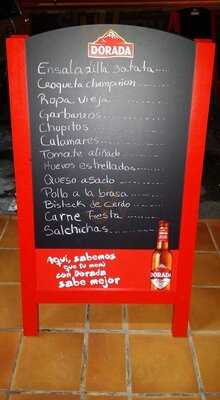 DORADA
Ensaladilla batata
Croqueta champiñon
Ropa vieja
Garbanzos
Chopitos
Calamares
Tomate aliñado
Huevos estrellados
Queso asado
Pollo a la brasa
Bisteck de cerdo
Carne Fiesta
Salchichas
Aquí, sabemos
que tu menú
con Dorada
sabe mejor
DORADA